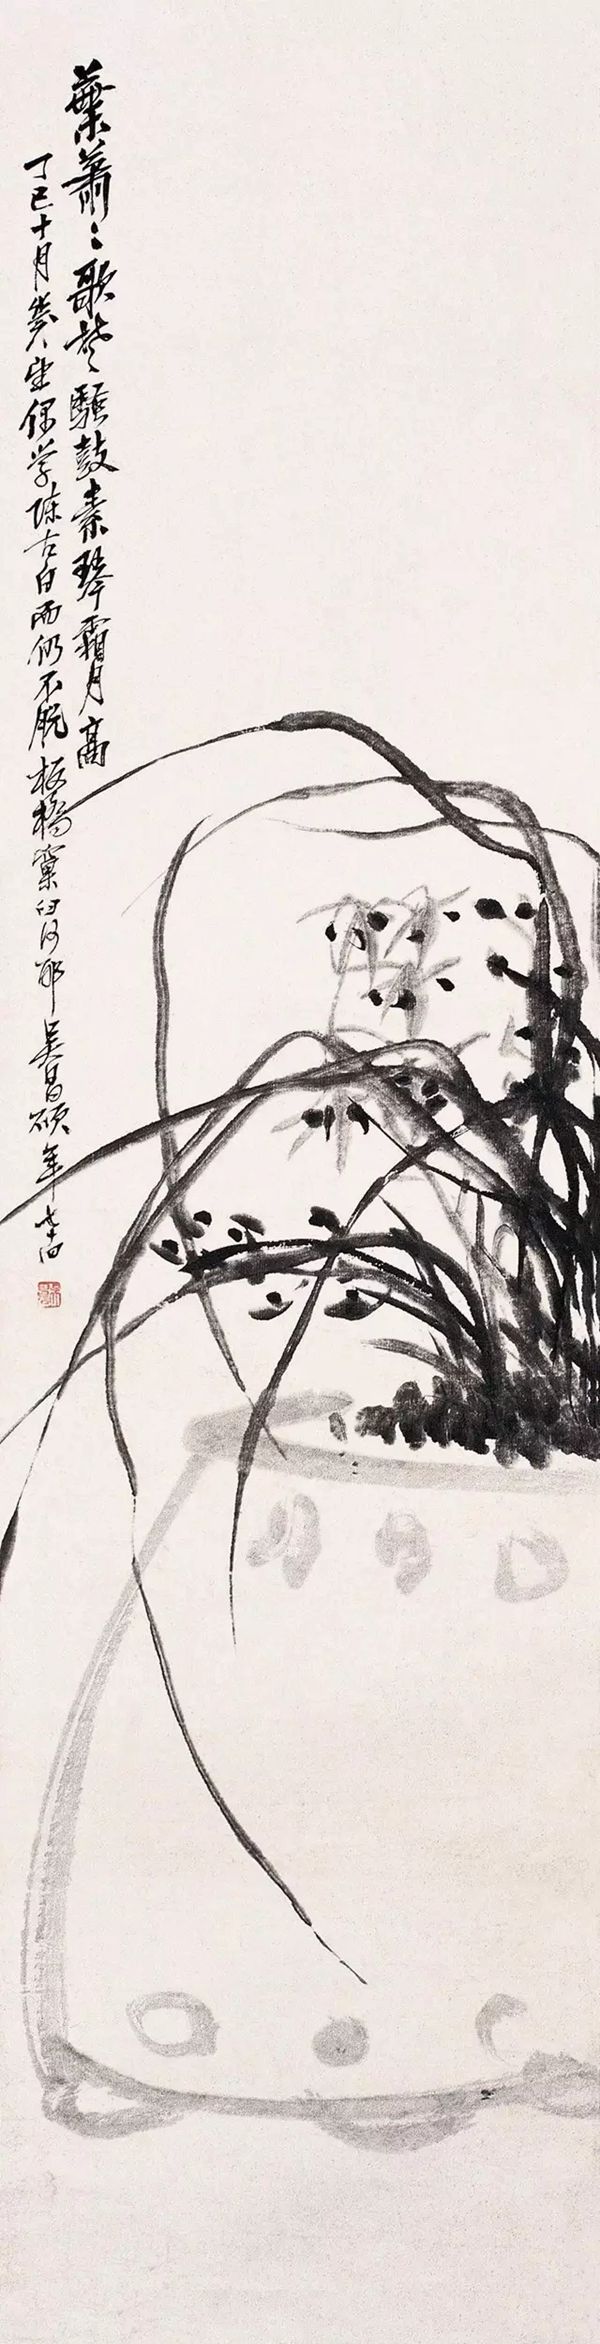 葉蕭〻歌楚騷鼓素琴霜月高
丁巳十月幾望偶学陳古白而仍不脫板橋窠臼何耶 吳昌碩年七十四